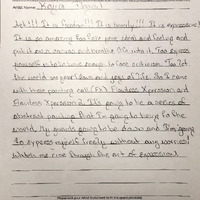 Artist Name: Kayla
Art!!! It is freedom!!! It is beauty!!! It is expressive!
It is so amazing to take your ideas and feeling and
put it onto canvas and breathe life into it. Too express
yourself is to be brave enough to face criticism. Too let
the world see your lows and joys of life. So I came
with these painting call (FX) Flawless Xpression and
Flawless Xpression 2. It's going to be a series of
abstract painting that I'm going to bring to the
world. My guards going to be down and I'm going
to express myself freely without any worries!
Watch me rise through the art of expression!